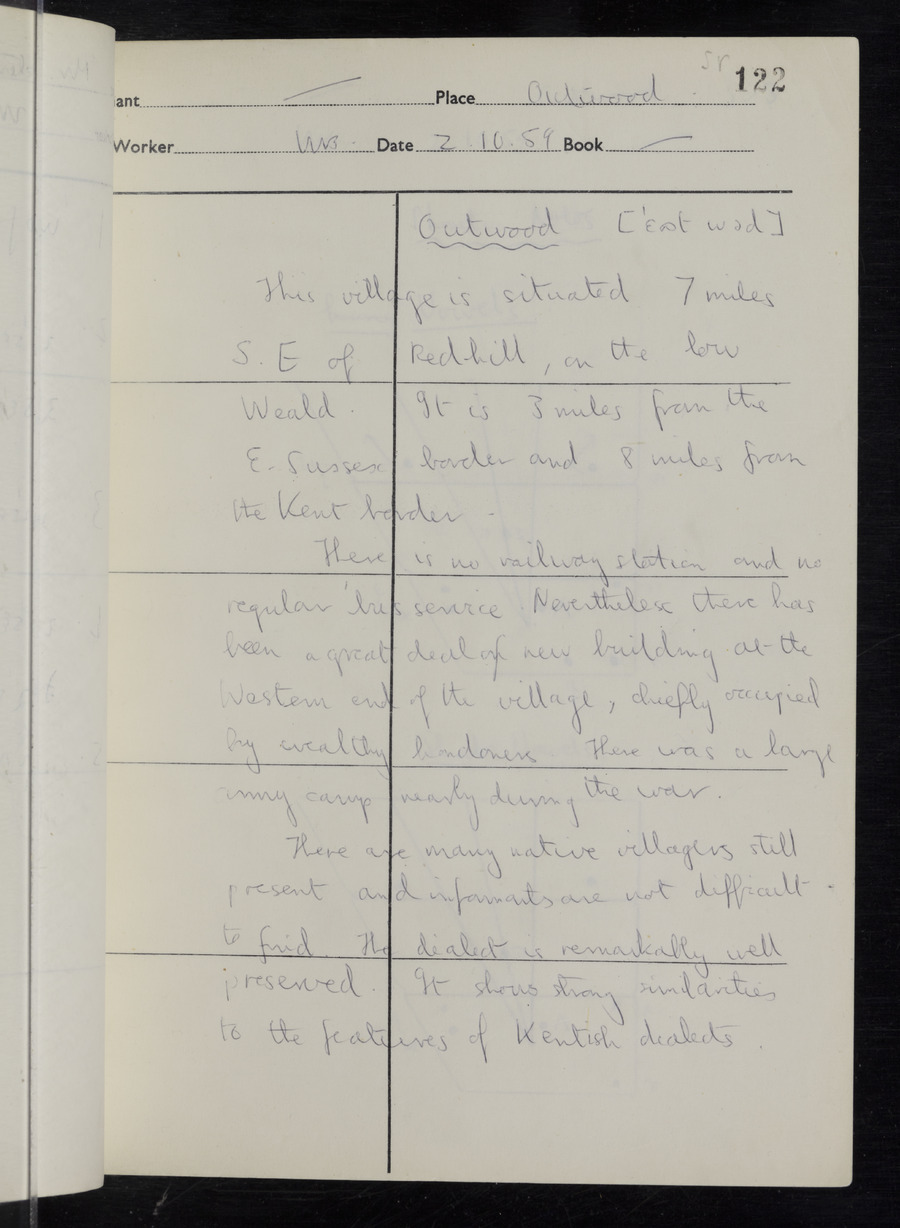 Sr 122
ant Place Outwood
Worker Date 2.10.59 Book
Outwood
This village is situated 7 miles
S.E of Redhill, on the low
Weald. It is 3 miles from the
E. Sussex border and 8 miles from
the Kent border.
There is no railway station and no
regular bus service Nevertheless there has
been a great deal of new building at the
Western end of the village, chiefly occupied
by wealthy Londoners. There was a large
army camp nearby during the war.
There are many native villagers still
present and informants are not difficult
to find. The dialect is remarkably well
preserved. It shows strong similarities
to the features of Kentish dialects.